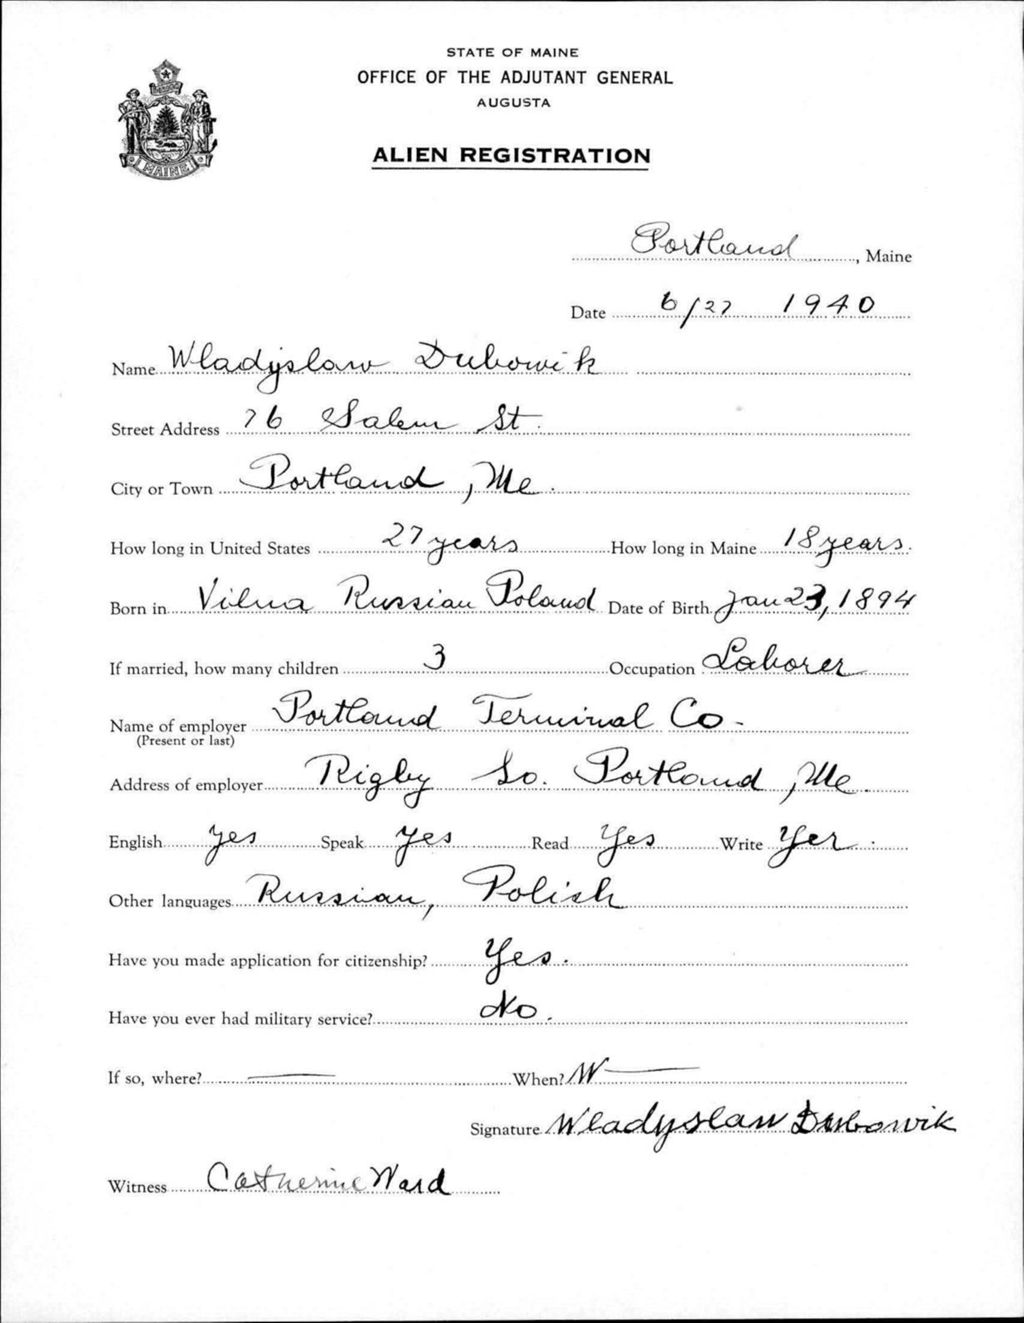 STATE OF MAINE
OFFICE OF THE ADJUTANT GENERAL
AUGUSTA
ALIEN REGISTRATION
MAINE
Portland, Maine
Date 6/27 1940
Name Wladyslaw Dubowik
Street Address 76 Salem St.
City or Town Portland, Me.
How long in United States 27 years How long in Maine 18 years.
Born in Vilna Russian Poland Date of Birth Jan 23, 1894
If married, how many children 3 Occupation Laborer
Name of employer Portland Terminal Co.
(Present or last)
Address of employer Rigby So. Portland, Me.
English yes Speak yes Read Yes Write Yes.
Other languages Russian, Polish
Have you made application for citizenship? Yes.
Have you ever had military service? No.
If so, where? — When? W—
Signature Wladyslaw Dubowik
Witness Catherine Ward